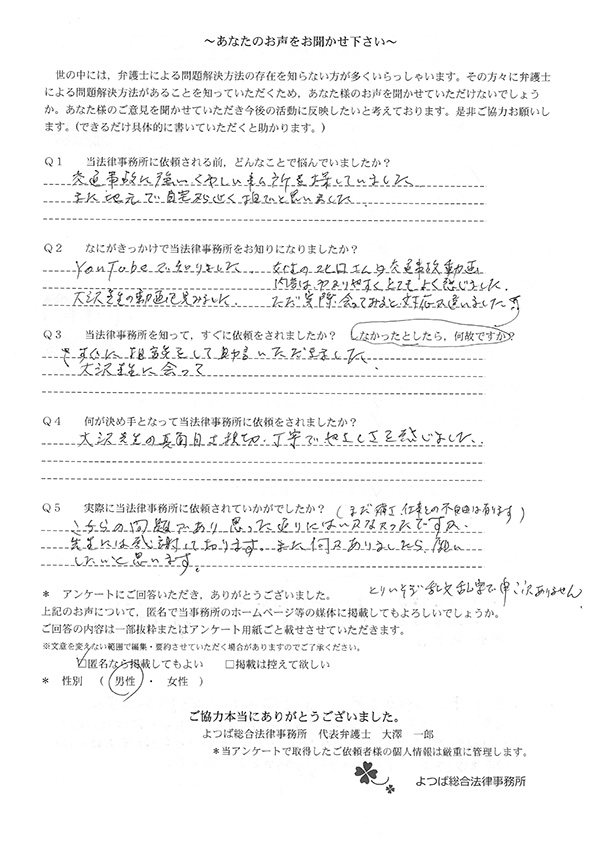 ~あなたのお声をお聞かせ下さい~
世の中には，弁護士による問題解決方法の存在を知らない方が多くいらっしゃいます。その方々に弁護士
による問題解決方法があることを知っていただくため，あなた様のお声を聞かせていただけないでしょう
か。あなた様のご意見を聞かせていただき今後の活動に反映したいと考えております。是非ご協力お願いし
ます。(できるだけ具体的に書いていただくと助かります。)
Q1 当法律事務所に依頼される前，どんなことで悩んでいましたか？
交通事故に強いくわしい 所を探していました
また地元で自宅から近く 思いました
Q2 なにがきっかけで当法律事務所をお知りになりましたか？
YouTubeで知りました。 交通事故動画
内容はわかりやすくとてもよく感じました。
大沢先生の動画も見ました。 ただ実際会ってみると 違いました
Q3 当法律事務所を知って，すぐに依頼をされましたか？ しなかったとしたら，何故ですか？
すぐに 助言いただきました
大沢先生に会って
Q4 何が決め手となって当法律事務所に依頼をされましたか？
大沢先生の真面目さ親切、丁寧でやさしさを感じました。
Q5 実際に当法律事務所に依頼されていかがでしたか？ (まだ痛さ、仕事との不自由は有ります)
こちらの問題であり思った通りにはいかなかったですが、
先生には感謝しております。また何かありましたらお願い
したいと思います。
とりいそぎ乱文乱筆で申し訳ありません。
* アンケートにご回答いただき，ありがとうございました。
上記のお声について，匿名で当事務所のホームページ等の媒体に掲載してもよろしいでしょうか。
ご回答の内容は一部抜粋またはアンケート用紙ごと載せさせていただきます。
※文意を変えない範囲で編集・要約させていただく場合がありますのでご了承ください。
☑匿名なら掲載してもよい □掲載は控えて欲しい
* 性別 ( 男性 ・ 女性 )
ご協力本当にありがとうございました。
よつば総合法律事務所 代表弁護士 大澤 一郎
*当アンケートで取得したご依頼者様の個人情報は厳重に管理します。
よつば総合法律事務所